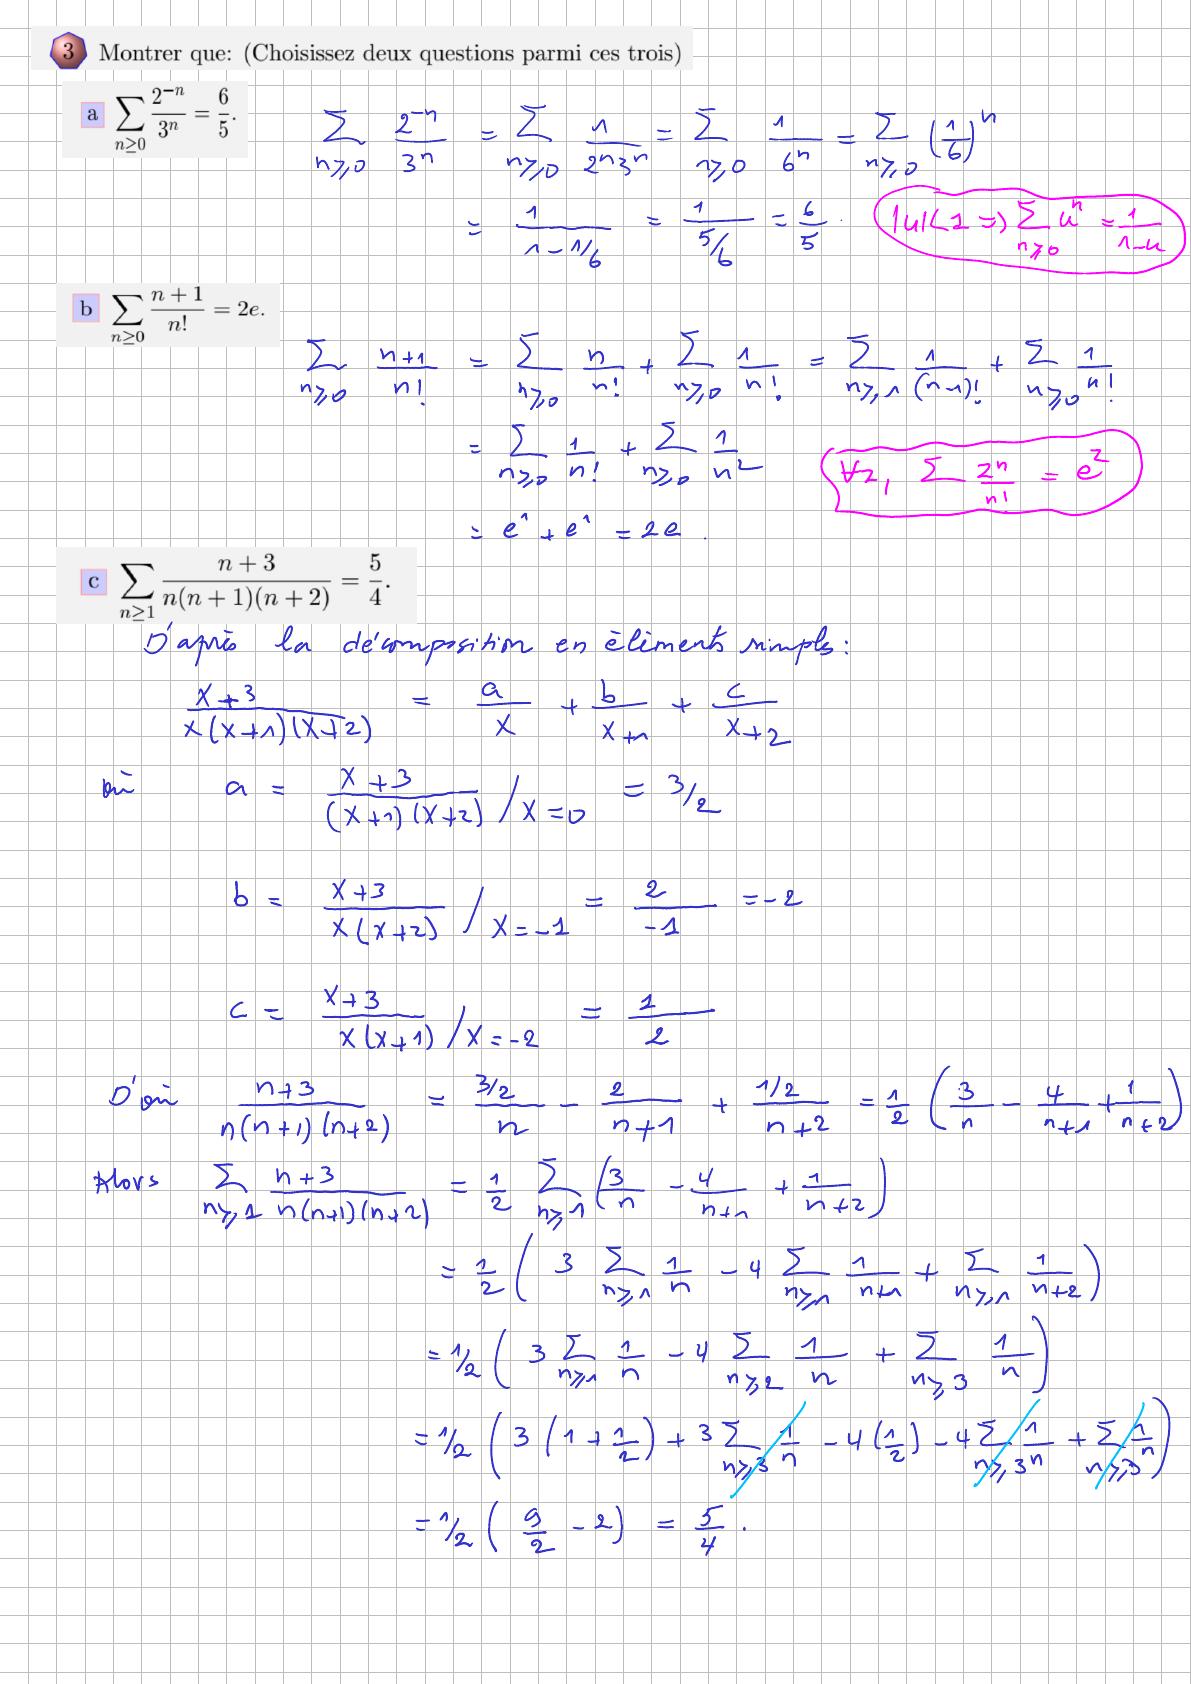 3 Montrer que: (Choisissez deux questions parmi ces trois)
a ∑_{n≥0} 2^{−n}/3^n = 6/5.
∑_{n≥0} 2^{-n}/3^n = ∑_{n≥0} 1/(2^n 3^n) = ∑_{n≥0} 1/6^n = ∑_{n≥0} (1/6)^n
= 1/(1 - 1/6) = 1/(5/6) = 6/5.
|u|<1 => ∑_{n≥0} u^n = 1/(1-u)
b ∑_{n≥0} (n + 1)/n! = 2e.
∑_{n≥0} (n+1)/n! = ∑_{n≥0} n/n! + ∑_{n≥0} 1/n! = ∑_{n≥1} 1/(n-1)! + ∑_{n≥0} 1/n!
= ∑_{n≥0} 1/n! + ∑_{n≥0} 1/n2
∀z, ∑ z^n/n! = e^z
= e^1 + e^1 = 2e.
c ∑_{n≥1} (n + 3)/(n(n + 1)(n + 2)) = 5/4.
D'après la décomposition en èliments simpls:
(X+3)/(X(X+1)(X+2)) = a/X + b/(X+1) + c/(X+2)
où a = (X+3)/((X+1)(X+2)) / X=0 = 3/2
b = (X+3)/(X(X+2)) / X=-1 = 2/-1 = -2
c = (X+3)/(X(X+1)) / X=-2 = 1/2
D'où (n+3)/(n(n+1)(n+2)) = (3/2)/n - 2/(n+1) + (1/2)/(n+2) = 1/2 (3/n - 4/(n+1) + 1/(n+2))
Alors ∑_{n≥1} (n+3)/(n(n+1)(n+2)) = 1/2 ∑_{n≥1} (3/n - 4/(n+1) + 1/(n+2))
= 1/2 ( 3 ∑_{n≥1} 1/n - 4 ∑_{n≥1} 1/(n+1) + ∑_{n≥1} 1/(n+2) )
= 1/2 ( 3 ∑_{n≥1} 1/n - 4 ∑_{n≥2} 1/n + ∑_{n≥3} 1/n )
= 1/2 ( 3 (1 + 1/2) + 3 ∑_{n≥3} 1/n - 4 (1/2) - 4 ∑_{n≥3} 1/n + ∑_{n≥3} 1/n )
= 1/2 ( 9/2 - 2 ) = 5/4.